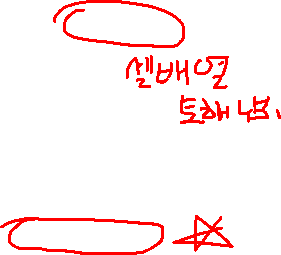 셀배열
토해냄.